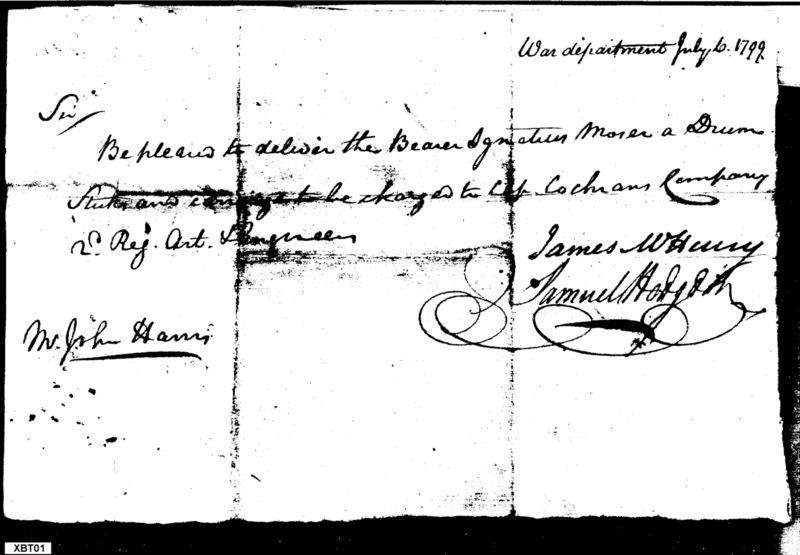 War department July, 6. 1799.
Sir
Be pleased to deliver the Bearer Ignatius Moser a Drum
Sticks and carriage to be charged to Cap. Cochrans Company
2d. Reg. Art. & Engineers
James McHenry
Samuel Hodgdon
Mr. John Harris
XBT01